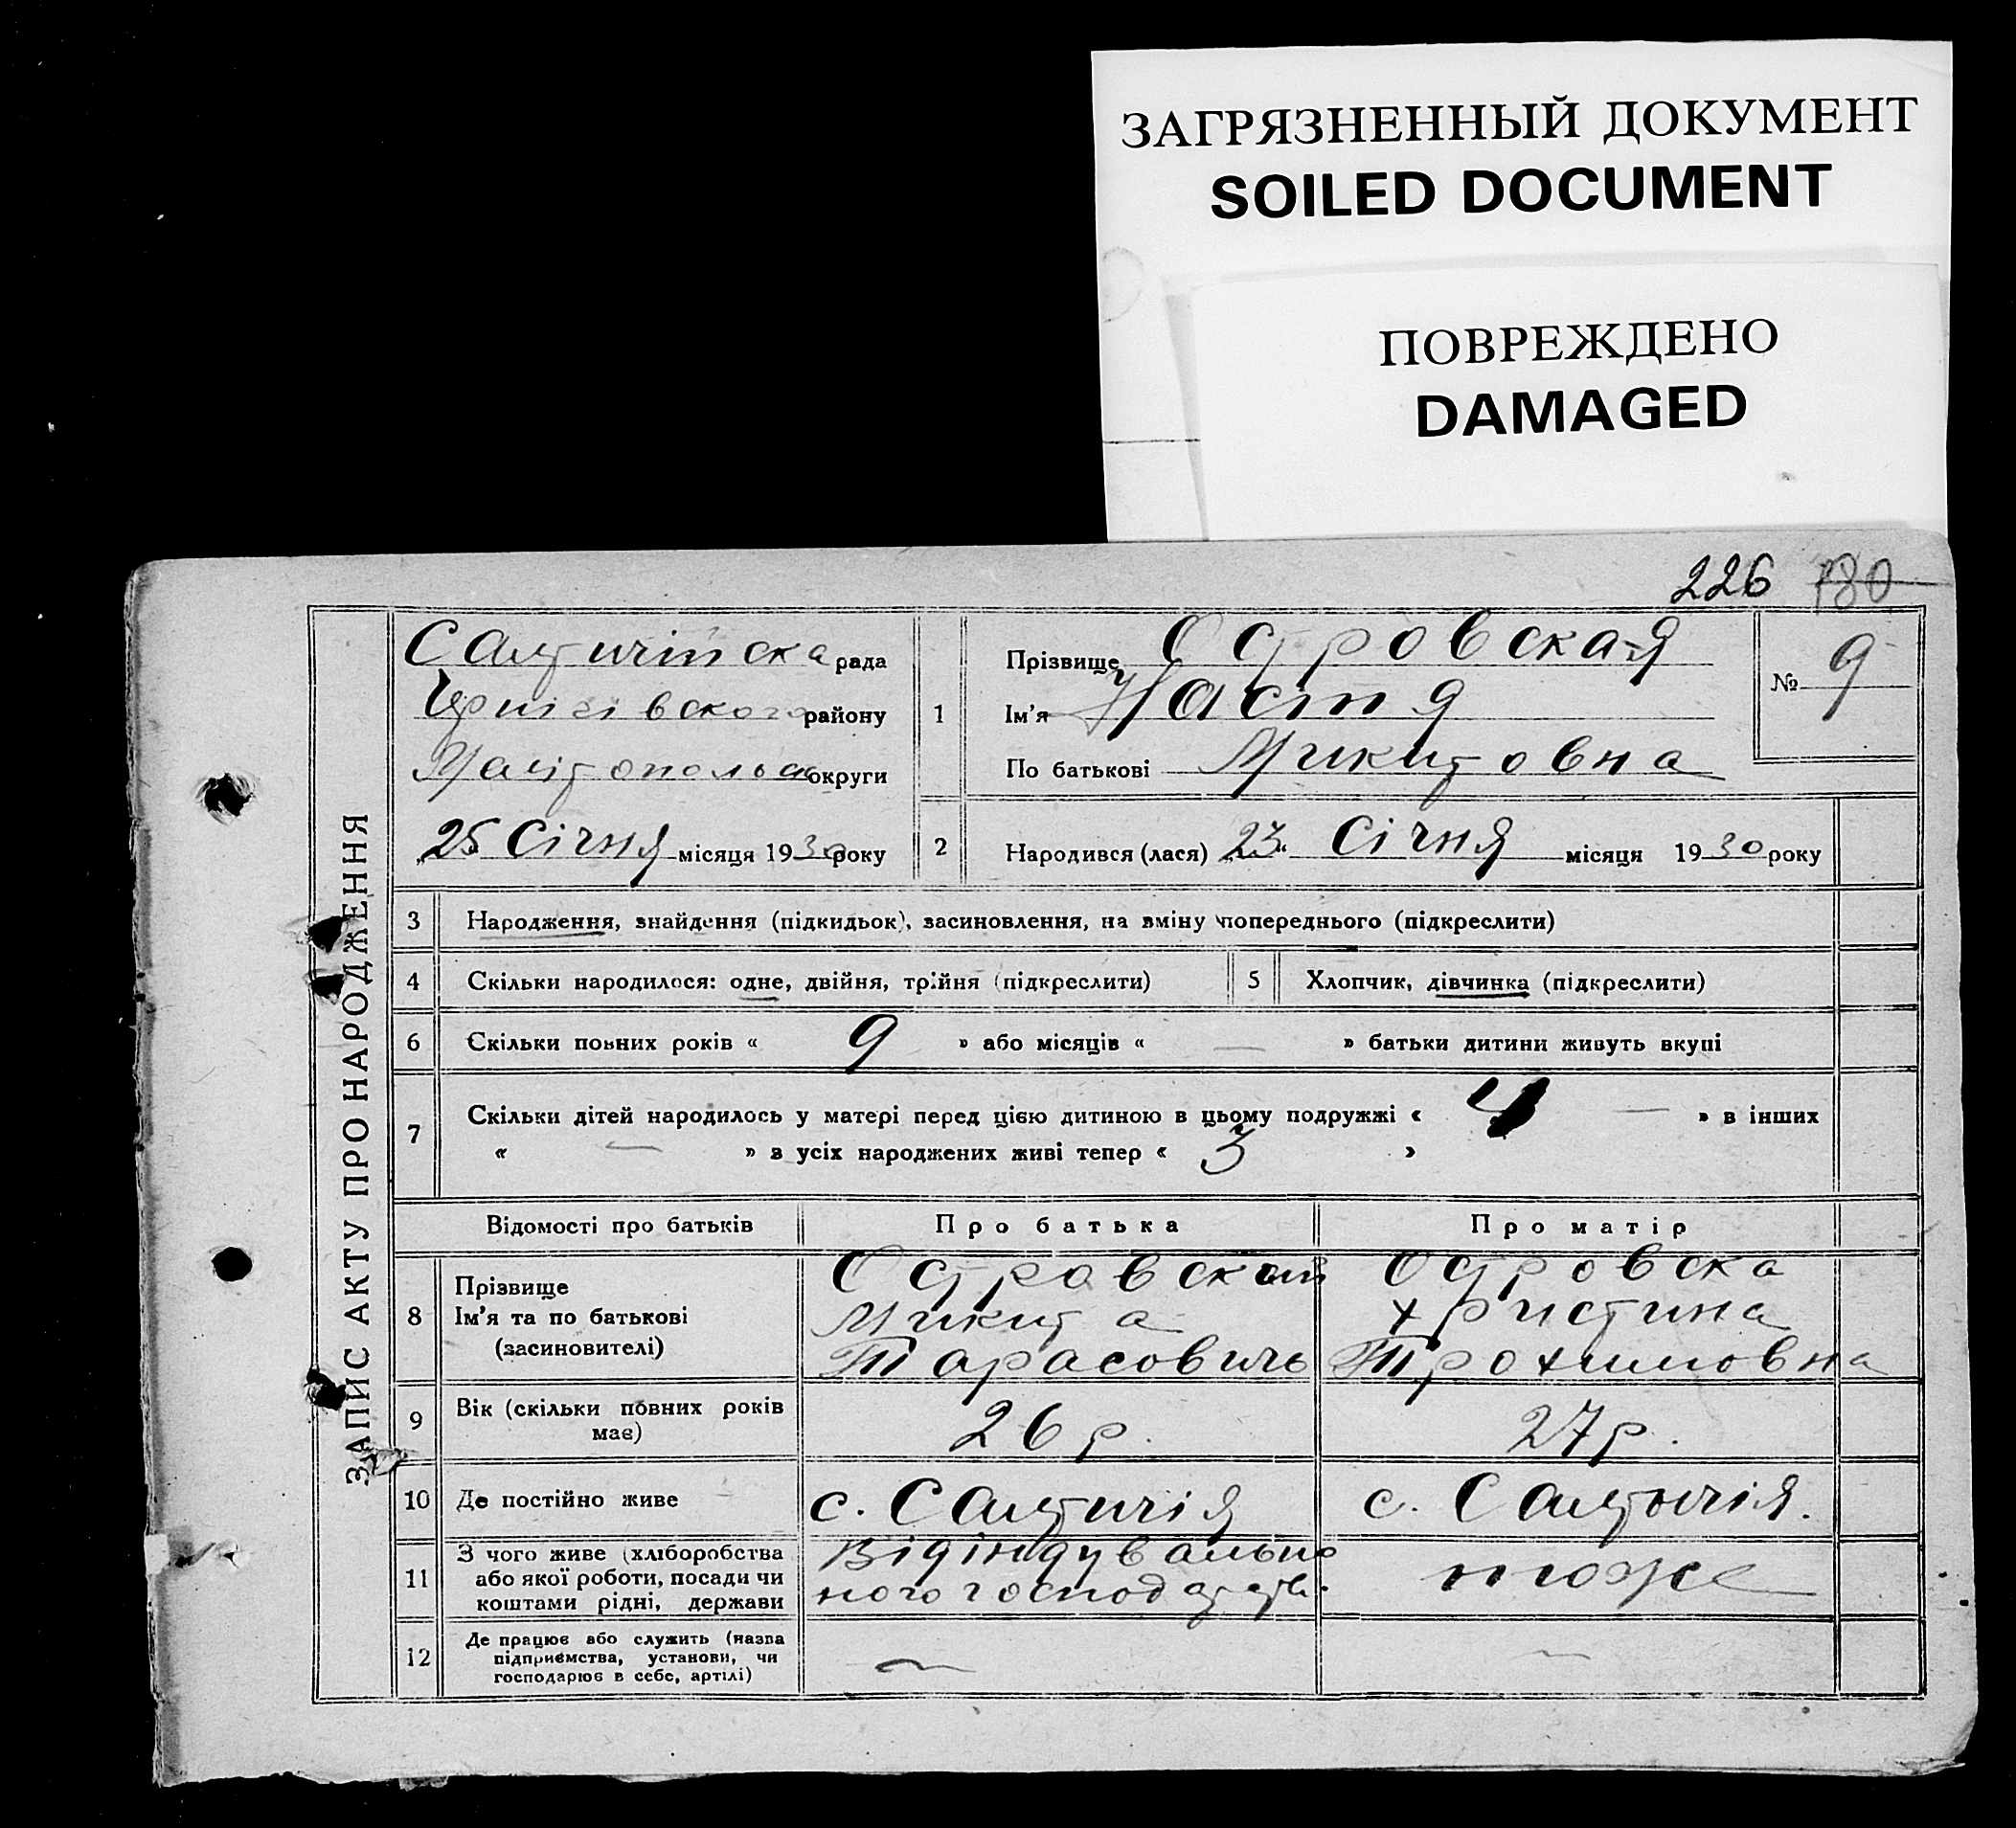 ЗАГРЯЗНЕННЫЙ ДОКУМЕНТ
SOILED DOCUMENT
ПОВРЕЖДЕНО
DAMAGED
226 730
ЗАПИС АКТУ ПРО НАРОДЖЕННЯ
Салтичійска рада
Чернігівского району
Малітопольс округи
25 Січня місяця 1930 року
1
Прізвище Островская
Ім'я Настя
По батькові Микитовна
№ 9
2
Народився (лася) „23“ Січня місяця 1930 року
3 Народження, знайдення (підкидьок), засиновлення, на вміну попереднього (підкреслити)
4 Скільки народилося: одне, двійня, трійня (підкреслити)
5 Хлопчик, дівчинка (підкреслити)
6 Скільки повних років « 9 » або місяців « — » батьки дитини живуть вкупі
7 Скільки дітей народилось у матері перед цією дитиною в цьому подружжі « 4 — » в інших
« — » з усіх народжених живі тепер « 3 »
Відомості про батьків Про батька Про матір
8 Прізвище
Ім'я та по батькові
(засиновителі)
Островский
Микита
Тарасовичь
Островска
Христина
Трохимовна
9 Вік (скільки повних років
має)
26 р. 27 р.
10 Де постійно живе с. Салтичія с. Салтычія.
11 З чого живе (хліборобства
або якої роботи, посади чи
коштами рідні, держави
Від індувально
ного господарств.
тоже
12 Де працює або служить (назва
підприємства, установи, чи
господарює в себе, артілі)
— —